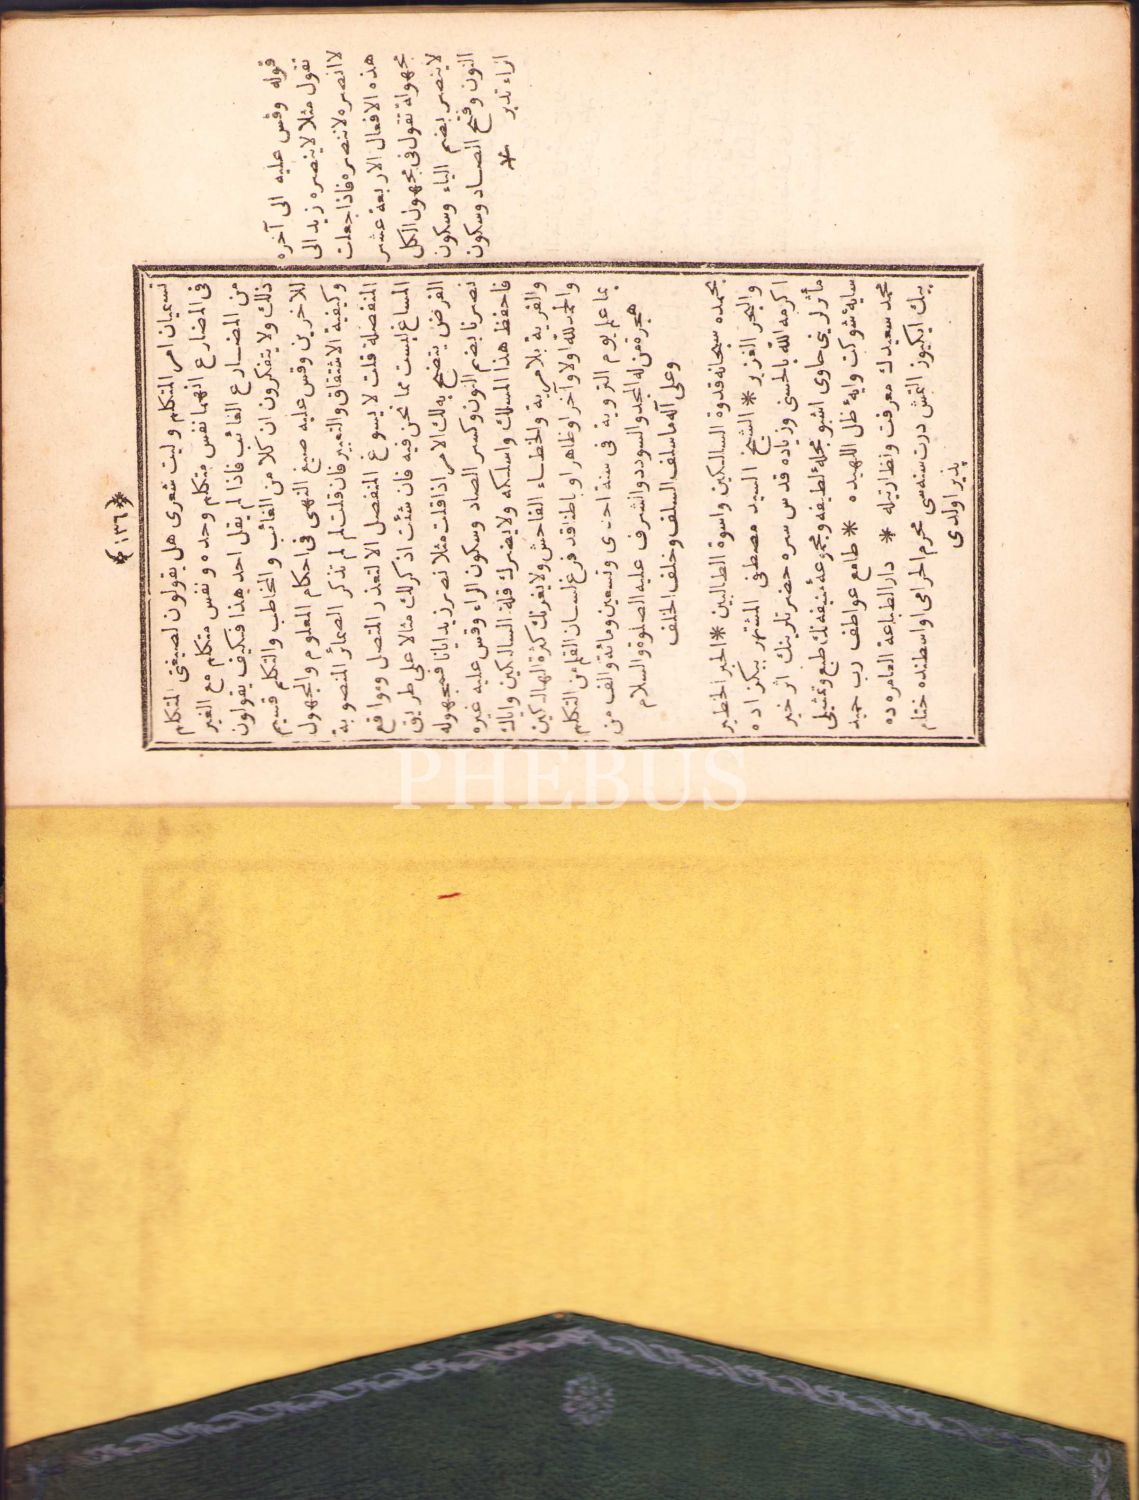 ﴿١٣٦﴾
تسميان امر المتكلم وليت شعرى هل يقولون لصيغتى المتكلم
فى المضارع انهما نفس متكلم وحده ونفس متكلم مع الغير
من المضارع الغائب فاذا لم يقل احد هذا فكيف يقولون
ذلك ولا يتفكرون ان كلا من الغائب والمخاطب والمتكلم قسيم
للآخرين وقس عليه صيغ النهى فى احكام المعلوم والمجهول
وكيفية الاشتقاق والتعبير فان قلت لم لم تذكر الضمائر المنصوبة
المنفصلة قلت لا يسوغ المنفصل الا لتعذر المتصل ومواقع
المساغ ليست مما نحن فيه فان شئت اذكر لك مثالا على طريق
الفرض يتضح به لك الامر اذا قلت مثلا نصر زيد ايانا فمجهوله
نصرنا بضم النون وكسر الصاد وسكون الراء وقس عليه غيره
فاحفظ هذا المسلك واسلكه ولا يضرك قلة السالكين واياك
والفرية بلا مرية والخطاء الفاحش ولا يغرنك كثرة الهالكين
والحمد لله اولا وآخرا وظاهرا وباطنا قد فرغ لسان القلم من التكلم
بما علم يوم التروية فى سنة احدى وتسعين ومائة والف من
هجرة من له المجد والسودد والشرف عليه الصلوة والسلام
وعلى آله ما سلف السلف وخلف الخلف
بحمده سبحانه قدوة السالكين واسوة الطالبين * الحبر الخطير
والبحر الغزير * الشيخ السيد مصطفى المشتهر ببكزاده
اكرمه الله بالحسنى وزياده قدس سره حضرتلرينك اثر خير
مأثرلرينى حاوى اشبو مجلۀ لطيفه ومجموعۀ منيفه نك طبع وتمثيلى
سايۀ شوكت وايۀ ظل اللهيده * طامع عواطف رب حميد
محمد سعيدك معرفت ونظارتيله * دار الطباعة العامره ده
بيك ايكيوز التمش درت سنه سى محرم الحرامى واسطنده ختام
پذير اولدى
قوله وقس عليه الى آخره
تقول مثلا لا ينصره زيد الى
لا انصره لا ننصره فاذا جعلت
هذه الافعال الاربعة عشر
مجهولة تقول فى مجهول الكل
لا ينصر بضم الياء وسكون
النون وفتح الصاد وسكون
الراء تدبر
*
PHEBUS